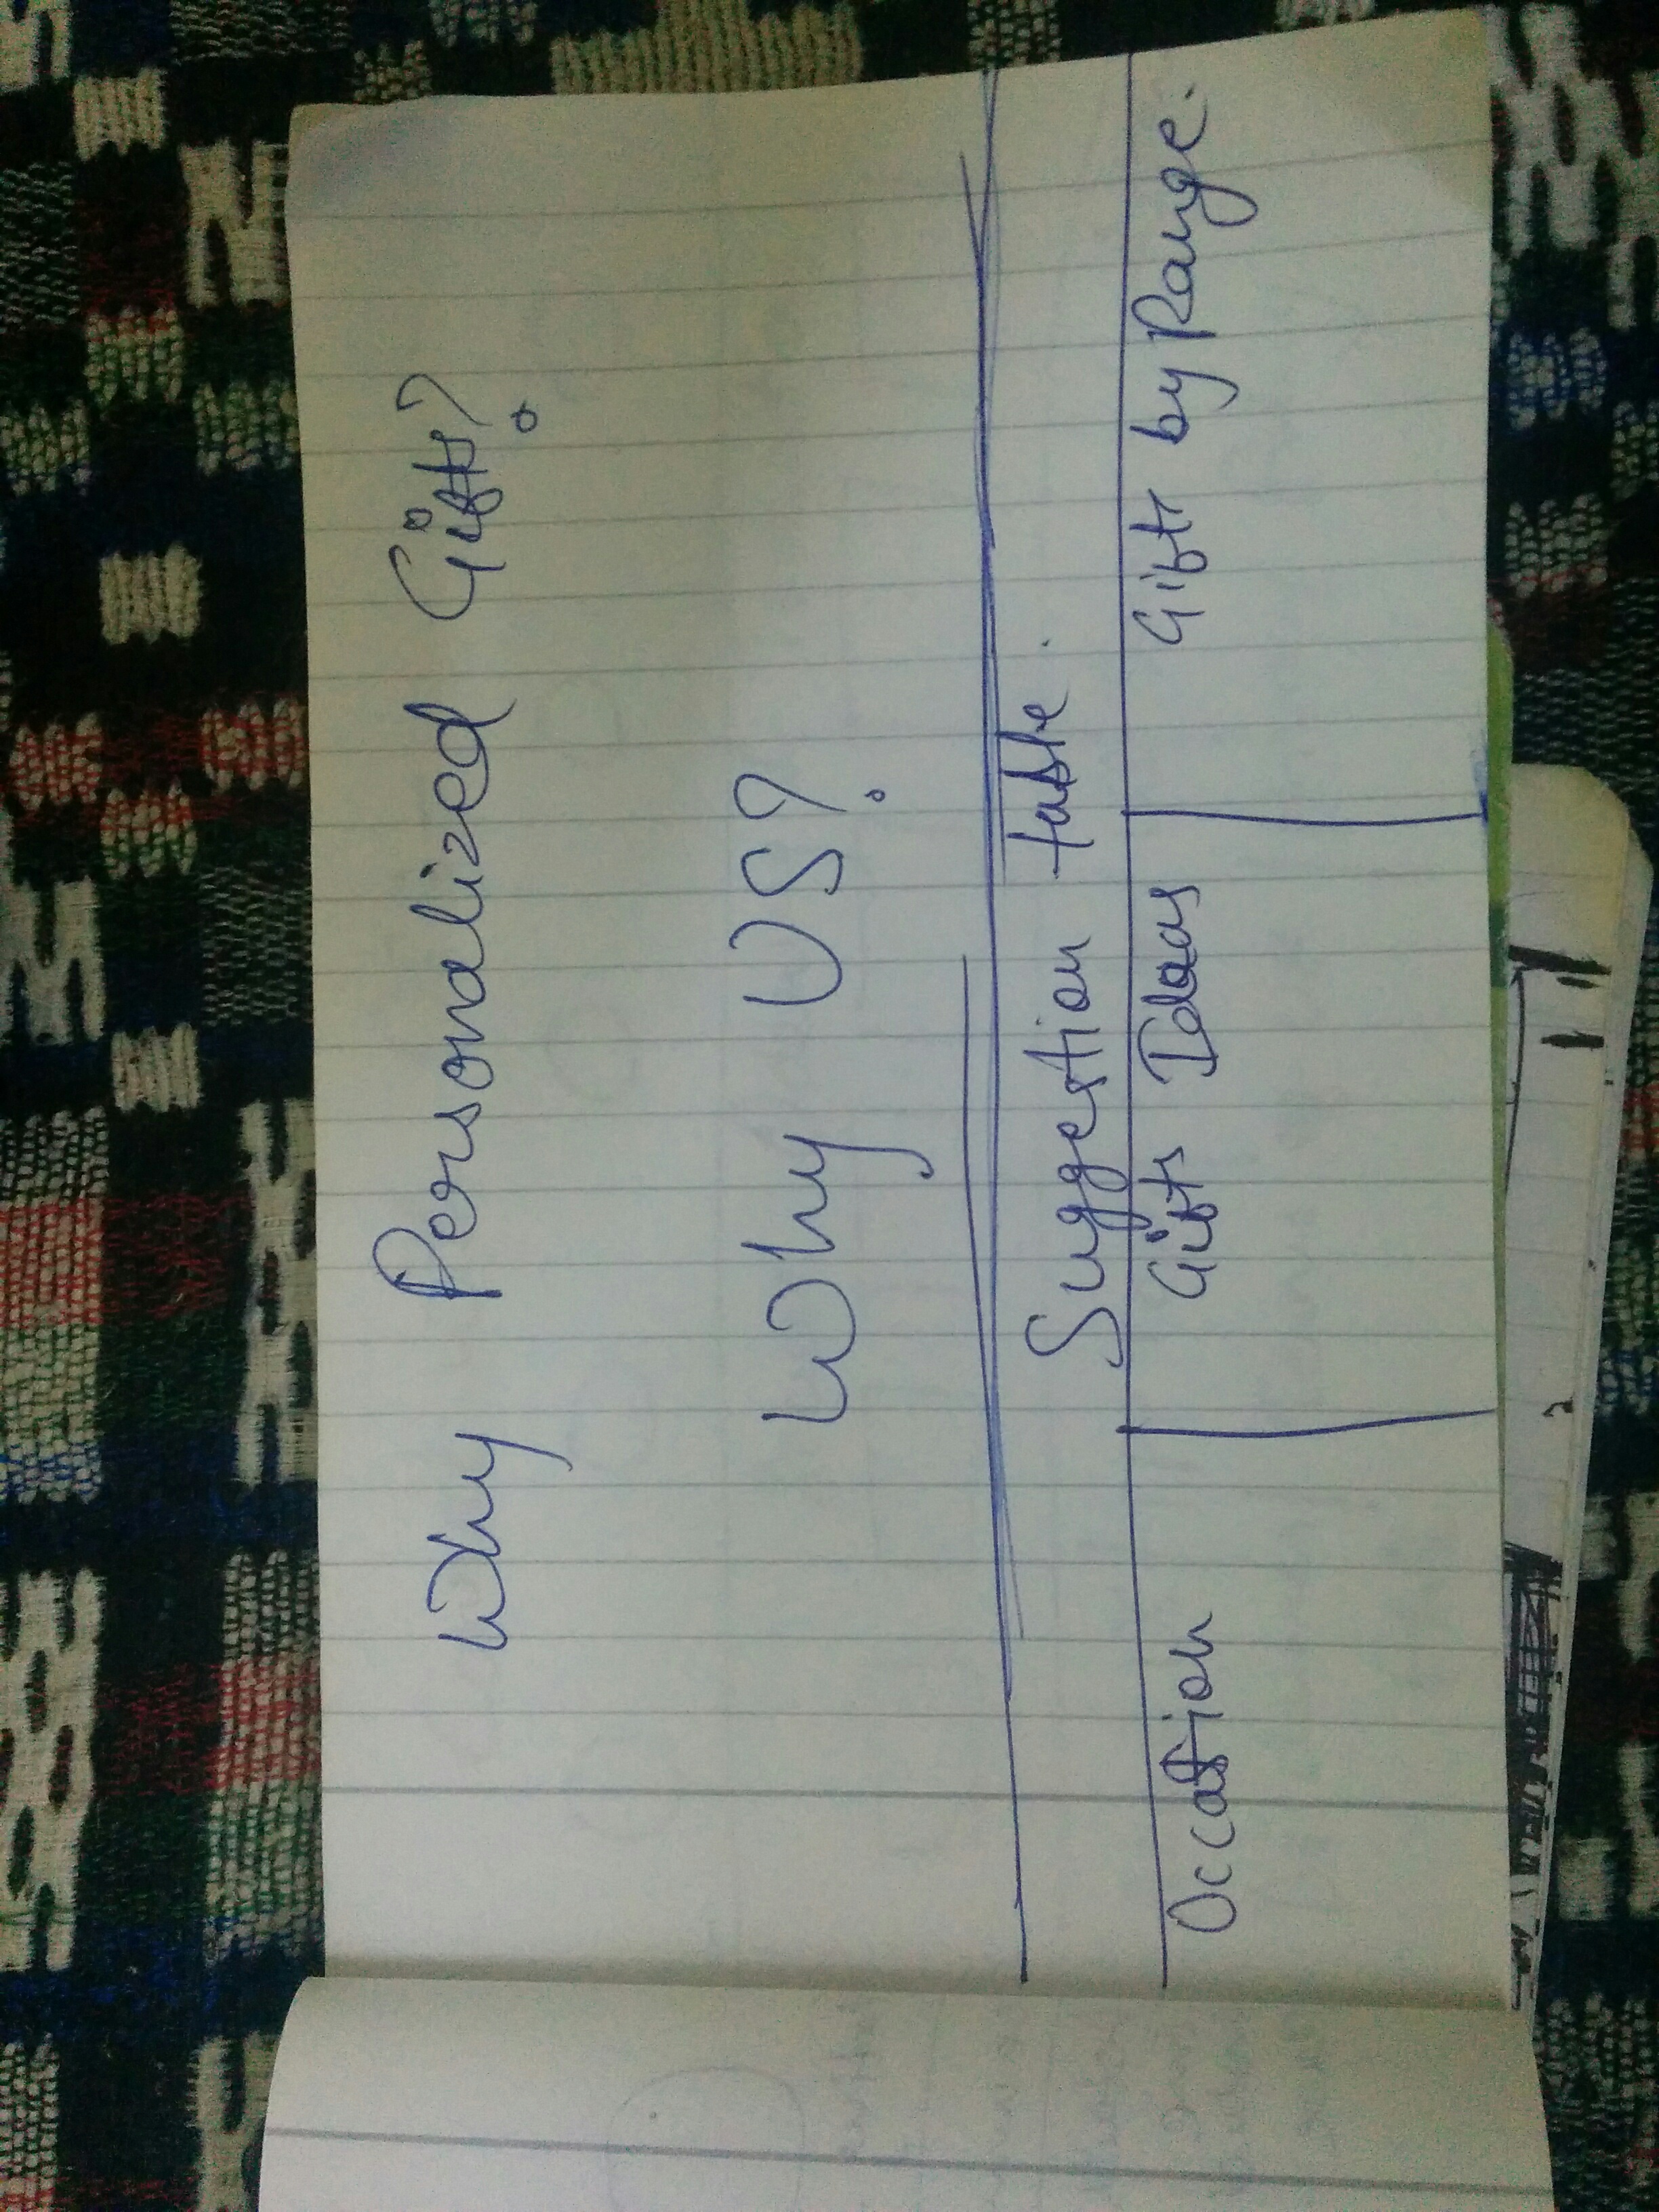 Why Personalized Gifts?
Why US?
Suggestion table.
Occasion Gifts Ideas Gifts by Range.